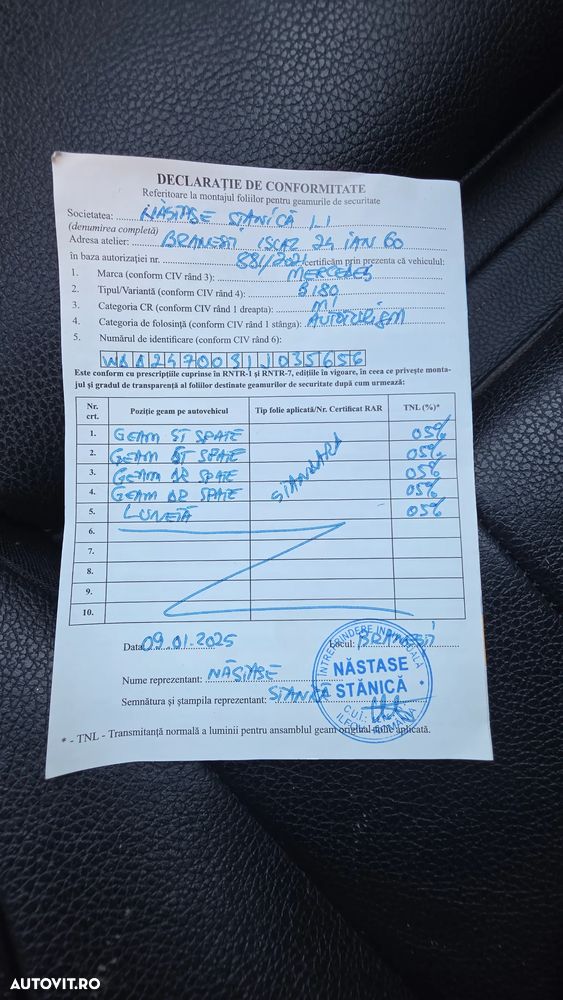 DECLARAȚIE DE CONFORMITATE
Referitoare la montajul foliilor pentru geamurile de securitate
Societatea: NĂSTASE STĂNICĂ I.I
(denumirea completă)
Adresa atelier: BRANESTI 24 IAN 60
în baza autorizației nr. 881/2021 certificăm prin prezenta că vehiculul:
1. Marca (conform CIV rând 3): MERCEDES
2. Tipul/Varianta (conform CIV rând 4): B180
3. Categoria CR (conform CIV rând 1 dreapta): M1
4. Categoria de folosință (conform CIV rând 1 stânga): AUTOTURISM
5. Numărul de identificare (conform CIV rând 6):
2470081J035656
Este conform cu prescripțiile cuprinse în RNTR-1 și RNTR-7, edițiile în vigoare, în ceea ce privește monta-
jul și gradul de transparență al foliilor destinate geamurilor de securitate după cum urmează:
Nr. crt. Poziție geam pe autovehicul Tip folie aplicată/Nr. Certificat RAR TNL (%)*
1. GEAM ST SPATE 05%
2. GEAM ST SPATE 05%
3. GEAM DR SPATE STANDARD 05%
4. GEAM DR SPATE 05%
5. LUNETĂ 05%
6.
7.
8.
9.
10.
Data 09.01.2025 Locul: BRANESTI
Nume reprezentant: NĂSTASE
Semnătura și ștampila reprezentant: STANICĂ
ÎNTREPRINDERE INDIVIDUALĂ
NĂSTASE
STĂNICĂ
C.U.I.
ILFOV - ROMÂNIA
* - TNL - Transmitanță normală a luminii pentru ansamblul geam original-folie aplicată.
AUTOVIT.RO